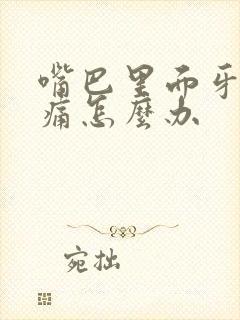 嘴巴里面牙
痛怎麽办
宛拙